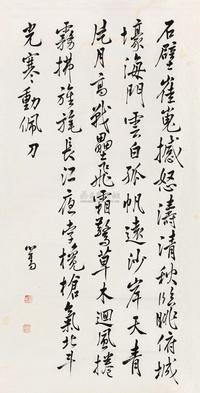 石壁崔嵬撼怒濤清秋臨眺俯城
壕海門雲白孤帆遠沙岸天青
片月高戰壘飛霜驚草木迴風捲
霧拂旌旄長江夜欃槍氣北斗
光寒動佩刀
心畬